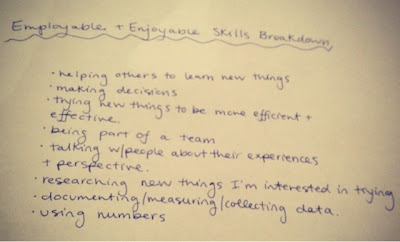 Employable + Enjoyable Skills Breakdown
• helping others to learn new things
• making decisions
• trying new things to be more efficient +
effective.
• being part of a team
• talking w/people about their experiences
+ perspective.
• researching new things I'm interested in trying
• documenting/measuring/collecting data.
• using numbers